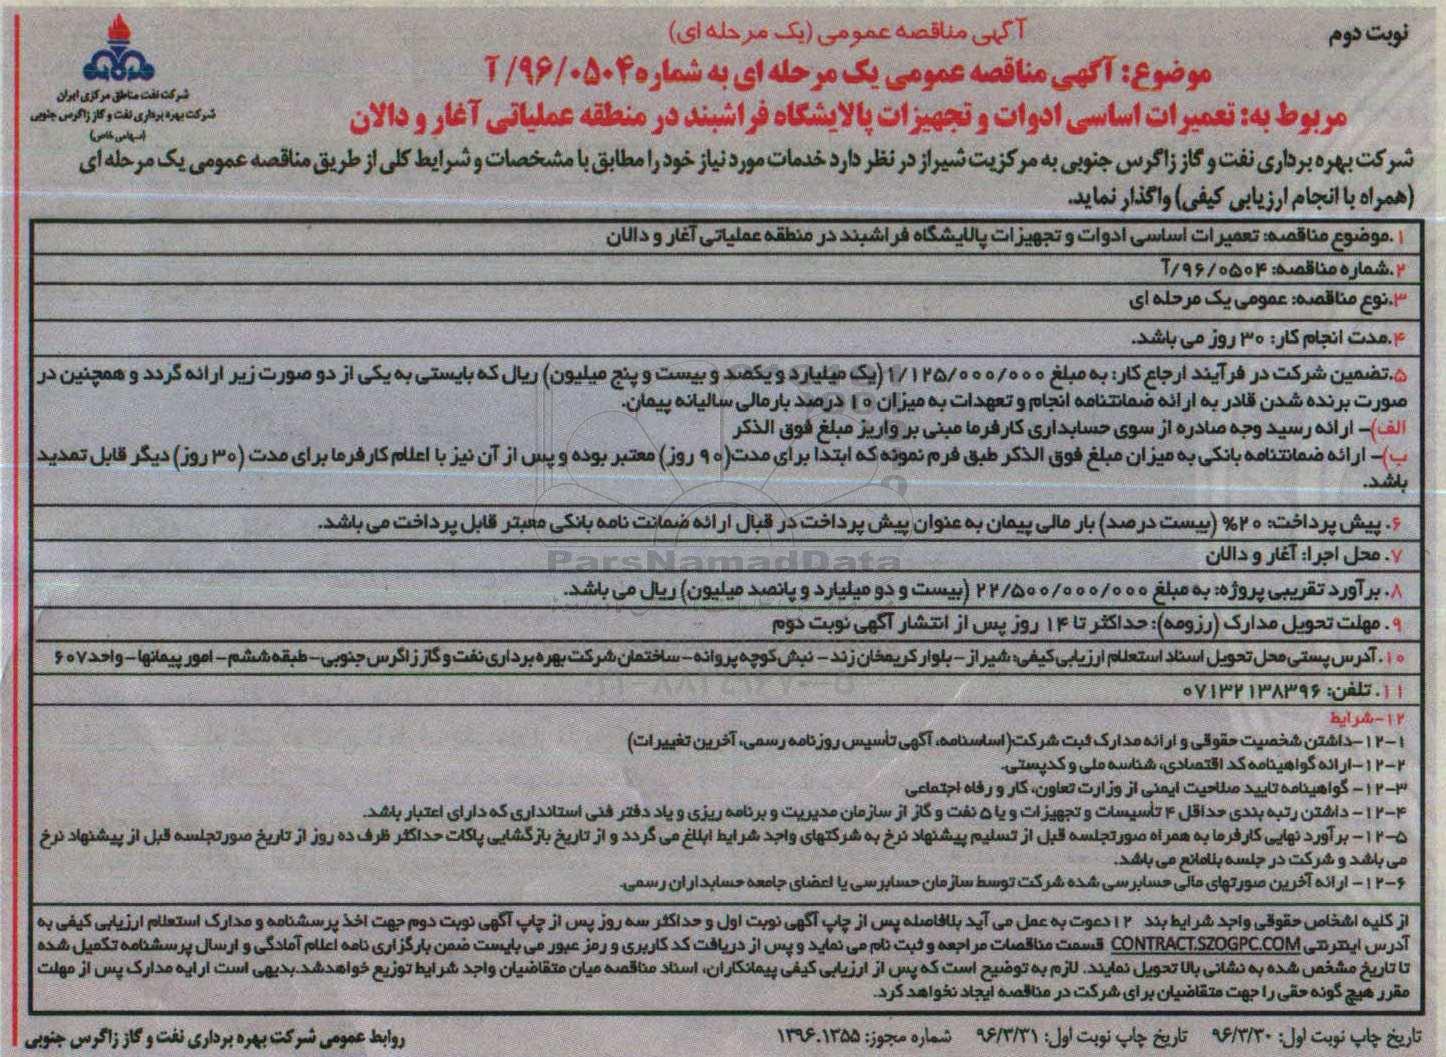 نوبت دوم
آگهی مناقصه عمومی (یک مرحله ای)
موضوع: آگهی مناقصه عمومی یک مرحله ای به شماره ۹۶/۰۵۰۴/آ
مربوط به: تعمیرات اساسی ادوات و تجهیزات پالایشگاه فراشبند در منطقه عملیاتی آغار و دالان
شرکت نفت مناطق مرکزی ایران
شرکت بهره برداری نفت و گاز زاگرس جنوبی
(سهامی خاص)
شرکت بهره برداری نفت و گاز زاگرس جنوبی به مرکزیت شیراز در نظر دارد خدمات مورد نیاز خود را مطابق با مشخصات و شرایط کلی از طریق مناقصه عمومی یک مرحله ای
(همراه با انجام ارزیابی کیفی) واگذار نماید.
۱.موضوع مناقصه: تعمیرات اساسی ادوات و تجهیزات پالایشگاه فراشبند در منطقه عملیاتی آغار و دالان
۲.شماره مناقصه: ۹۶/۰۵۰۴/آ
۳.نوع مناقصه: عمومی یک مرحله ای
۴.مدت انجام کار: ۳۰ روز می باشد.
۵.تضمین شرکت در فرآیند ارجاع کار: به مبلغ ۱/۱۲۵/۰۰۰/۰۰۰ (یک میلیارد و یکصد و بیست و پنج میلیون) ریال که بایستی به یکی از دو صورت زیر ارائه گردد و همچنین در
صورت برنده شدن قادر به ارائه ضمانتنامه انجام و تعهدات به میزان ۱۰ درصد بارمالی سالیانه پیمان.
الف)- ارائه رسید وجه صادره از سوی حسابداری کارفرما مبنی بر واریز مبلغ فوق الذکر
ب)- ارائه ضمانتنامه بانکی به میزان مبلغ فوق الذکر طبق فرم نمونه که ابتدا برای مدت(۹۰ روز) معتبر بوده و پس از آن نیز با اعلام کارفرما برای مدت (۳۰ روز) دیگر قابل تمدید
باشد.
۶. پیش پرداخت: ۲۰% (بیست درصد) بار مالی پیمان به عنوان پیش پرداخت در قبال ارائه ضمانت نامه بانکی معبتر قابل پرداخت می باشد.
ParsNamadData
۷. محل اجرا: آغار و دالان
۸. برآورد تقریبی پروژه: به مبلغ ۲۲/۵۰۰/۰۰۰/۰۰۰ (بیست و دو میلیارد و پانصد میلیون) ریال می باشد.
۹. مهلت تحویل مدارک (رزومه): حداکثر تا ۱۴ روز پس از انتشار آگهی نوبت دوم
۱۰. آدرس پستی محل تحویل اسناد استعلام ارزیابی کیفی: شیراز - بلوار کریمخان زند - نبش کوچه پروانه - ساختمان شرکت بهره برداری نفت و گاز زاگرس جنوبی - طبقه ششم - امور پیمانها - واحد ۶۰۷
۱۱. تلفن: ۰۷۱۳۲۱۳۸۳۹۶
۱۲-شرایط
۱۲-۱-داشتن شخصیت حقوقی و ارائه مدارک ثبت شرکت(اساسنامه، آگهی تأسیس روزنامه رسمی، آخرین تغییرات)
۱۲-۲-ارائه گواهینامه کد اقتصادی، شناسه ملی و کدپستی.
۱۲-۳- گواهینامه تایید صلاحیت ایمنی از وزارت تعاون، کار و رفاه اجتماعی
۱۲-۴- داشتن رتبه بندی حداقل ۴ تأسیسات و تجهیزات و یا ۵ نفت و گاز از سازمان مدیریت و برنامه ریزی و یاد دفتر فنی استانداری که دارای اعتبار باشد.
۱۲-۵- برآورد نهایی کارفرما به همراه صورتجلسه قبل از تسلیم پیشنهاد نرخ به شرکتهای واجد شرایط ابلاغ می گردد و از تاریخ بازگشایی پاکات حداکثر ظرف ده روز از تاریخ صورتجلسه قبل از پیشنهاد نرخ
می باشد و شرکت در جلسه بلامانع می باشد.
۱۲-۶- ارائه آخرین صورتهای مالی حسابرسی شده شرکت توسط سازمان حسابرسی یا اعضای جامعه حسابداران رسمی.
از کلیه اشخاص حقوقی واجد شرایط بند ۱۲دعوت به عمل می آید بلافاصله پس از چاپ آگهی نوبت اول و حداکثر سه روز پس از چاپ آگهی نوبت دوم جهت اخذ پرسشنامه و مدارک استعلام ارزیابی کیفی به
آدرس اینترنتی CONTRACT.SZOGPC.COM قسمت مناقصات مراجعه و ثبت نام می نماید و پس از دریافت کد کاربری و رمز عبور می بایست ضمن بارگزاری نامه اعلام آمادگی و ارسال پرسشنامه تکمیل شده
تا تاریخ مشخص شده به نشانی بالا تحویل نمایند. لازم به توضیح است که پس از ارزیابی کیفی پیمانکاران، اسناد مناقصه میان متقاضیان واجد شرایط توزیع خواهدشد.بدیهی است ارایه مدارک پس از مهلت
مقرر هیچ گونه حقی را جهت متقاضیان برای شرکت در مناقصه ایجاد نخواهد کرد.
تاریخ چاپ نوبت اول: ۹۶/۳/۳۰ تاریخ چاپ نوبت اول: ۹۶/۳/۳۱ شماره مجوز: ۱۳۹۶.۱۳۵۵
روابط عمومی شرکت بهره برداری نفت و گاز زاگرس جنوبی